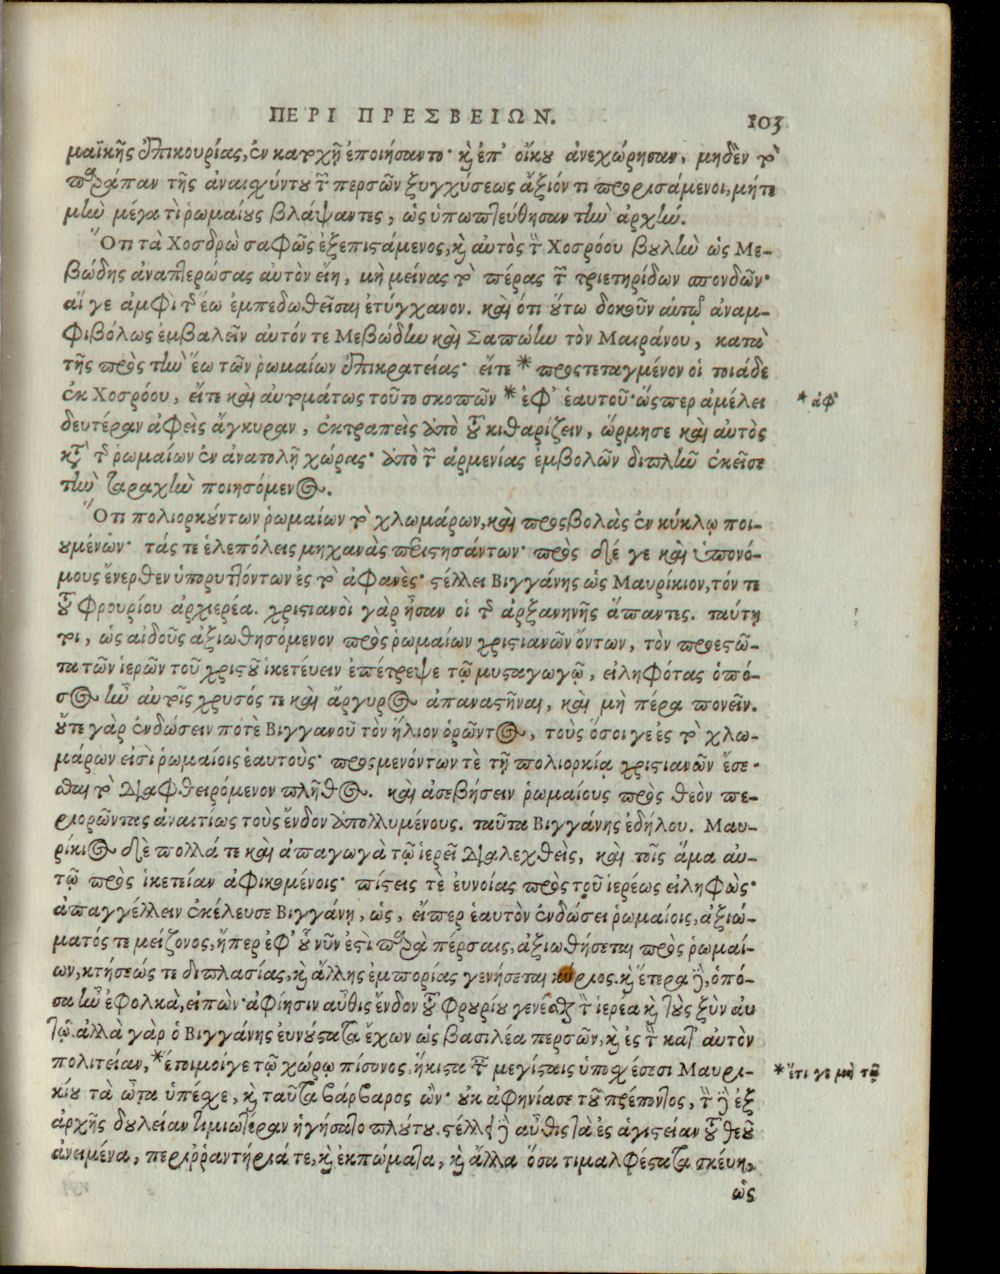 ΠΕΡΙ ΠΡΕΣΒΕΙΩΝ. 103
μαϊκῆς ἐπικουρίας, ἐν καρχῆ ἐποιήσαντο· καὶ ἐπ' οἴκου ἀνεχώρησαν, μηδὲν τὸ
παράπαν τῆς ἀναισχύντου τῶν περσῶν ξυγχύσεως ἄξιόν τι πορισάμενοι, μήτε
μὴν μέγα τὶ ῥωμαίους βλάψαντες, ὡς ὑπωπτεύθησαν τὴν ἀρχήν.
Ὅτι τὰ Χοσδρὼ σαφῶς ἐξεπιστάμενος, καὶ αὐτὸς τὴν Χοσρόου βουλὴν ὡς Με-
βώδης ἀναπτερώσας αὐτὸν εἴη, μὴ μείνας τὸ πέρας τῶν τριετηρίδων σπονδῶν·
αἵ γε ἀμφὶ τὴν ἕω ἐμπεδωθεῖσαι ἐτύγχανον. καὶ ὅτι οὕτω δοκοῦν αὐτῷ ἀναμ-
φιβόλως ἐμβαλεῖν αὐτόν τε Μεβώδην καὶ Σαπώην τὸν Μαιράνου, κατὰ
τῆς πρὸς τὴν ἕω τῶν ῥωμαίων ἐπικρατείας· εἴτε * προστεταγμένον οἱ τοιάδε
ἐκ Χοσρόου, εἴτε καὶ αὐτομάτως τοῦτο σκοπῶν * ἐφ' ἑαυτοῦ· ὥσπερ ἀμέλει
* ἀφ'
δευτέραν ἀφεὶς ἄγκυραν, ἐκτραπεὶς ἀπὸ τοῦ κιθαρίζειν, ὥρμησε καὶ αὐτὸς
κατὰ τῆς ῥωμαίων ἐν ἀνατολῇ χώρας· ἀπὸ τῶν ἀρμενίας ἐμβολῶν διπλῆν ἐκεῖσε
τὴν ταραχὴν ποιησόμενος.
Ὅτι πολιορκούντων ῥωμαίων τὸ χλωμάρων, καὶ προσβολὰς ἐν κύκλῳ ποι-
ουμένων· τάς τε ἑλεπόλεις μηχανὰς περιστησάντων· πρὸς δέ γε καὶ ὑπονό-
μους ἔνερθεν ὑπορυττόντων ἐς τὸ ἀφανὲς· στέλλει Βιγγάνης ὡς Μαυρίκιον, τόν τε
τοῦ φρουρίου ἀρχιερέα. χριστιανοὶ γὰρ ἦσαν οἱ τῆς ἀρξανηνῆς ἅπαντες. ταύτῃ
τοι, ὡς αἰδοῦς ἀξιωθησόμενον πρὸς ῥωμαίων χριστιανῶν ὄντων, τὸν προεστῶ-
τα τῶν ἱερῶν τοῦ χριστοῦ ἱκετεύειν ἐπέτρεψε τῷ μυσταγωγῷ, εἰληφότας ὁπό-
σος ἦν αὐτοῖς χρυσός τε καὶ ἄργυρος ἀπαναστῆναι, καὶ μὴ πέρα πονεῖν.
οὔτε γὰρ ἐνδώσειν ποτὲ Βιγγανοῦ τὸν ἥλιον ὁρῶντος, τοὺς ὅσοι γε ἐς τὸ χλω-
μάρων εἰσὶ ῥωμαίοις ἑαυτοὺς· προσμενόντων τὲ τῇ πολιορκίᾳ χριστιανῶν ἔσε-
σθαι τὸ διαφθειρόμενον πλῆθος. καὶ ἀσεβήσειν ῥωμαίους πρὸς θεὸν πε-
ριορῶντας ἀναιτίως τοὺς ἔνδον ἀπολλυμένους. ταῦτα Βιγγάνης ἐδήλου. Μαυ-
ρίκιος δὲ πολλά τε καὶ ἀπαγωγὰ τῷ ἱερεῖ διαλεχθεὶς, καὶ τοῖς ἅμα αὐ-
τῷ πρὸς ἱκετείαν ἀφικομένοις· πίστεις τὲ εὐνοίας πρὸς τοῦ ἱερέως εἰληφὼς·
ἀπαγγέλλειν ἐκέλευσε Βιγγάνῃ, ὡς, εἴπερ ἑαυτὸν ἐνδώσει ῥωμαίοις, ἀξιώ-
ματός τε μείζονος, ἤπερ ἐφ' οὗ νῦν ἐστὶ παρὰ πέρσαις, ἀξιωθήσεται πρὸς ῥωμαί-
ων, κτήσεώς τε διπλασίας, καὶ ἄλλης ἐμπορίας γενήσεται κύριος. καὶ ἕτερα δὴ, ὁπό-
σα ἦν ἐφολκὰ, εἰπὼν· ἀφίησιν αὖθις ἔνδον τοῦ φρουρίου γενέσθαι τὸν ἱερέα καὶ τοὺς ξὺν αὐ
τῷ. ἀλλὰ γὰρ ὁ Βιγγάνης εὐνούστατα ἔχων ὡς βασιλέα περσῶν, καὶ ἐς τὴν κατ' αὐτὸν
πολιτείαν, * ἔτοιμοίγε τῷ χώρῳ πίσυνος, ἥκιστα ταῖς μεγίσταις ὑποσχέσεσι Μαυρι-
* ἔτι γε μὴ τῷ
κίου τὰ ὦτα ὑπέσχε, καὶ ταῦτα βάρβαρος ὤν· οὐκ ἀφηνίασε τοῦ πρέποντος, τὴν δὲ ἐξ
ἀρχῆς δουλείαν τιμιωτέραν ἡγήσατο πλούτου. στέλλει δὲ αὖθις τὰ ἐς ἁγιστείαν τοῦ θεοῦ
ἀνειμένα, περιῤῥαντήριά τε, καὶ ἐκπώματα, καὶ ἄλλα ὅσα τιμαλφέστατα σκέυη,
ὡς